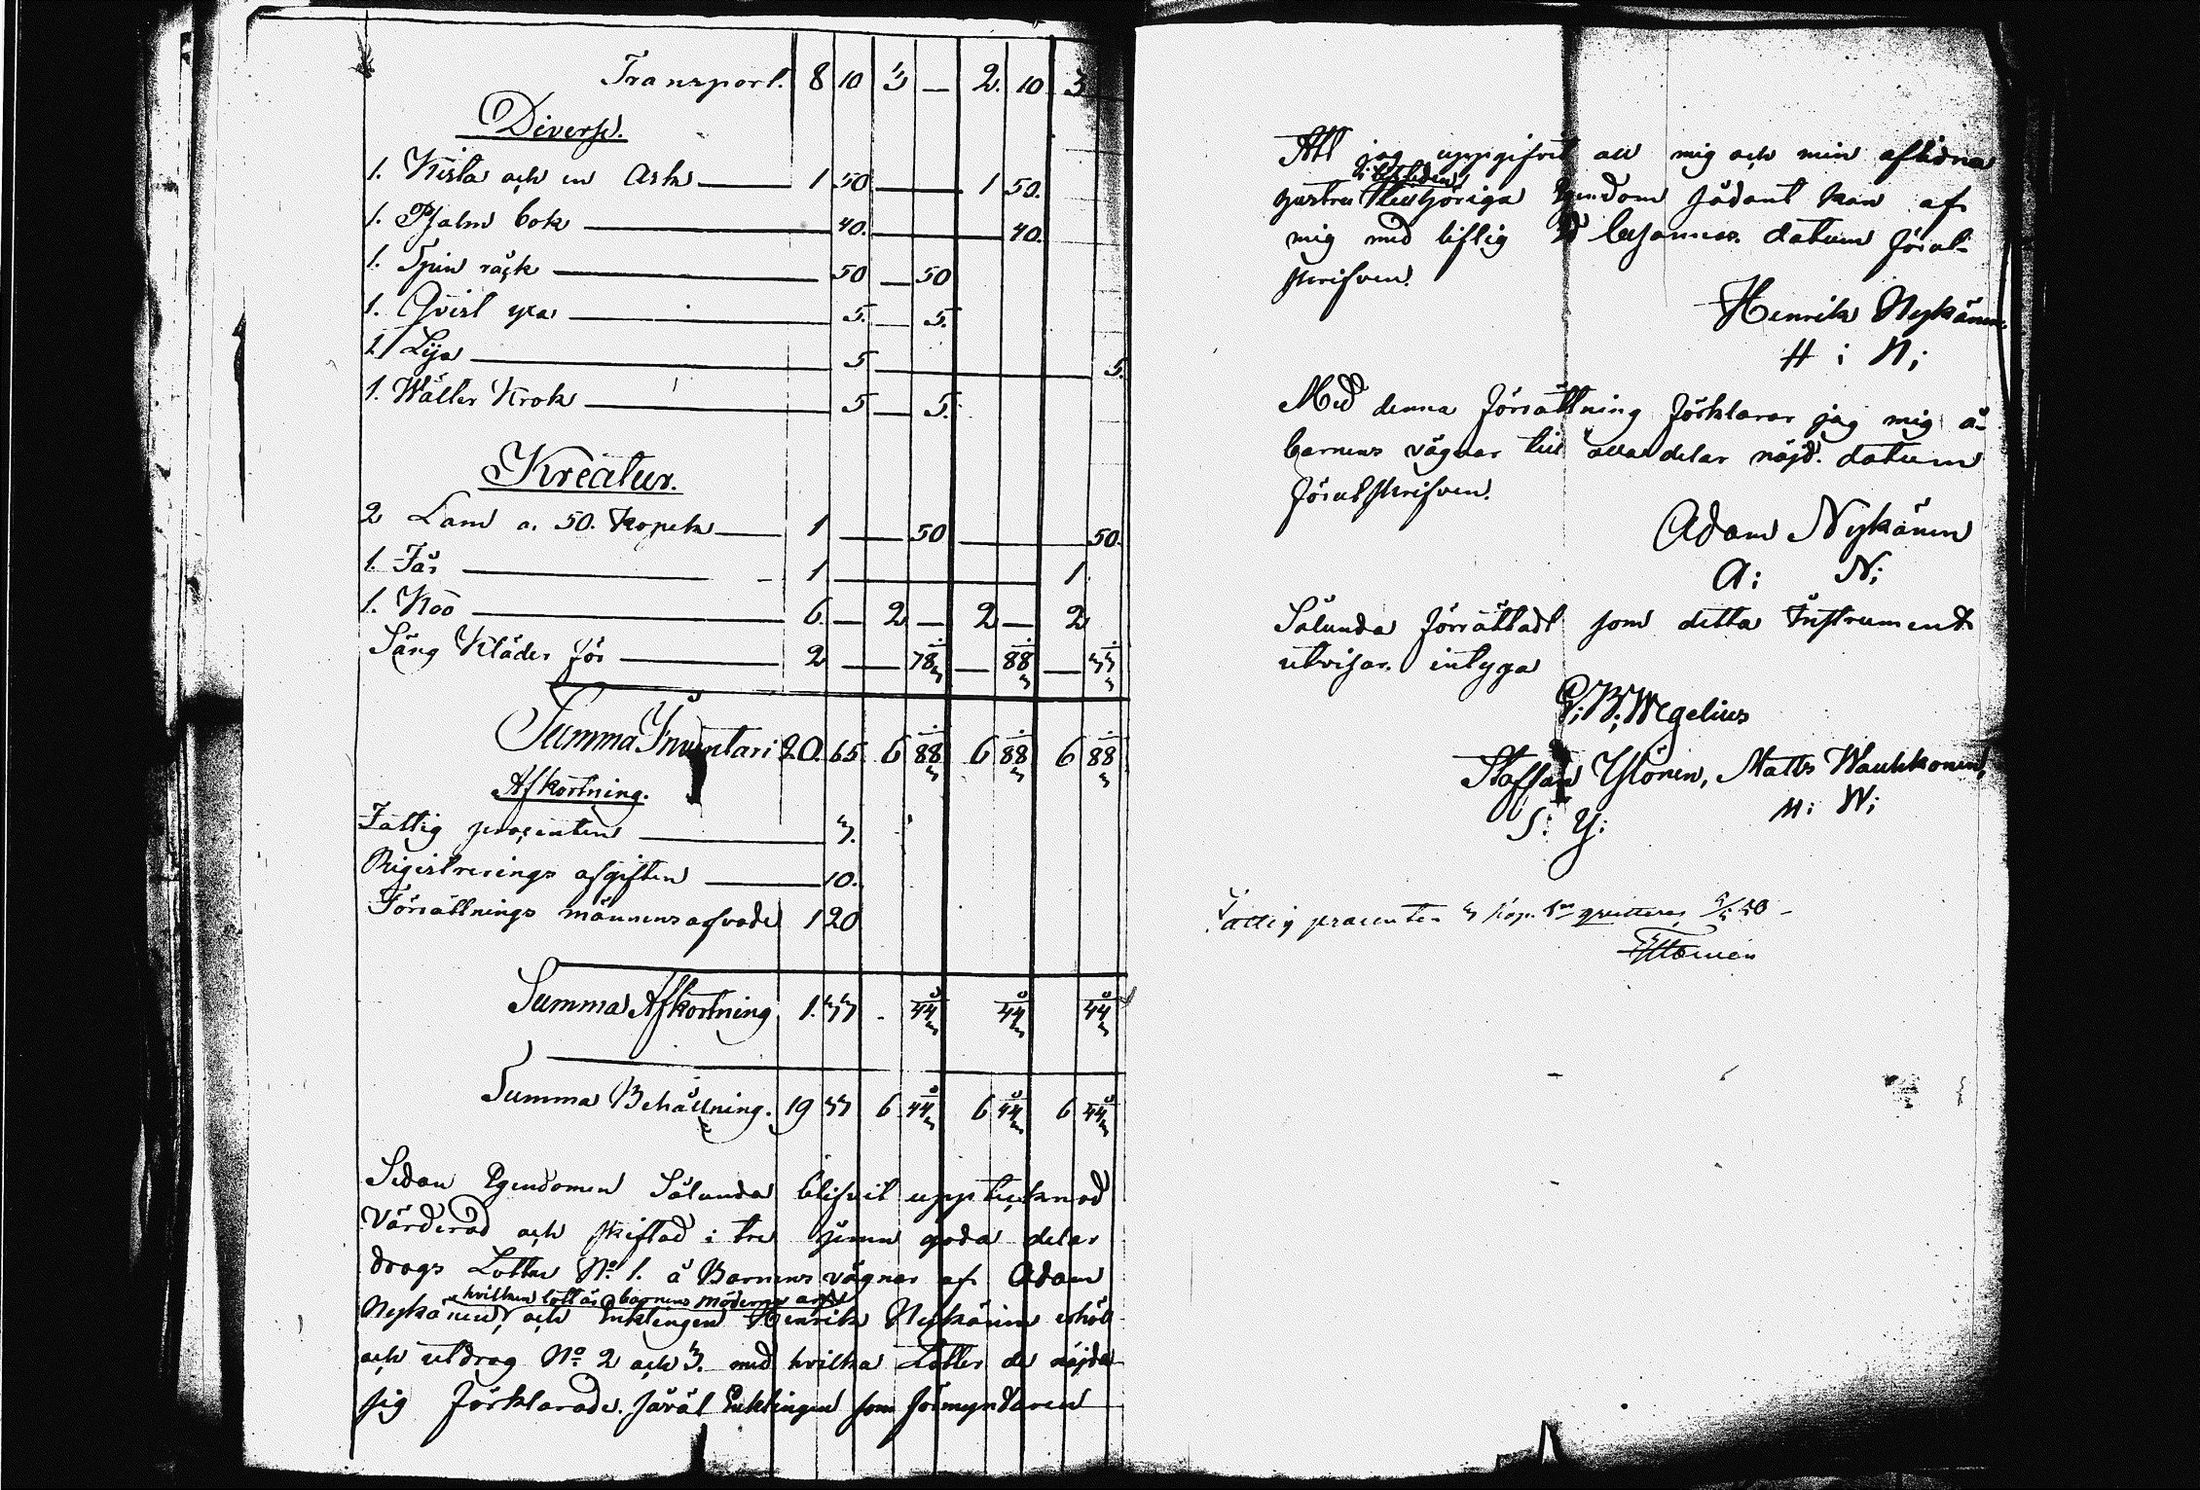 Transport. 8 10 3 — 2. 10 3
Diverse.
1. Kista och en Ask 1 50 1 50.
1. Psalm bok 40. 40.
1. Spin råck 50 50
1. Qvist yxa 5. 5.
1 Lija 5 5.
1. Wälter Krok 5 5.
Kreatur.
2 Lam a. 50. Kopek 1 50 50.
1. Får 1 1
1. Koo 6. 2 — 2 — 2
Säng Kläder för 2 78 88 33
Summa Inventari 20. 65 6 88 6 88 6 88
Afkortning.
Fattig procenten 3.
Registrerings afgiften 10.
Förrättnings männens arfvode 1 20
Summa Afkortning 1. 33 44 44 44
Summa Behållning. 19 33 6 44 6 44 6 44
Sedan Egendomen Sålunda blifvit upptecknad
Värderad och skiftad i tre jemn goda delar
drogs Lotten No 1. å Barnens vägnar af Adam
hvilken lott är barnens möderne arf
Nykänen, och Enklingen Henrik Nykänen erhöll
och utdrog No 2 och 3. med hvilka Lotter de nöjda
sig förklarade. såväl Enklingen som förmyndaren
Att jag uppgifvit all mig och min aflidna
hustru tillhöriga Egendom sådant kan af
mig med liflig Ed besannas. datum förut-
skrifven.
Henrik Nykänen
H i N;
Med denna förrättning förklarar jag mig å
barnens vägnar till alla delar nöjd. datum
förutskrifven.
Adam Nykänen
A: N;
Sålunda förrättadt som detta Instrument
utvisar. intyga
Wegelius
Staffan Ylönen, Matts Wauhkonen,
S: Y: M: W;
Fattig procenten 3 kop. Sr qvitteras 50
Ylönen